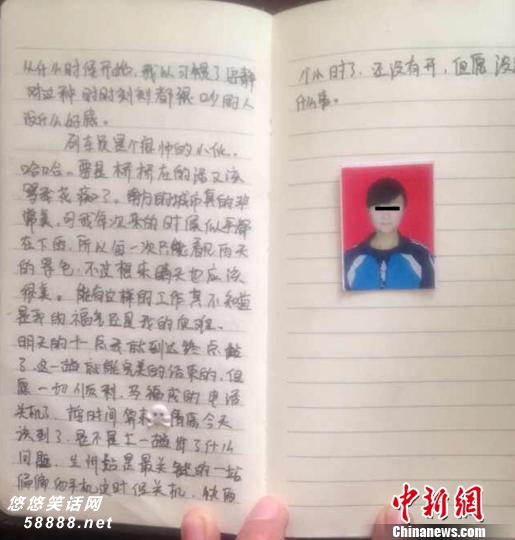 从什么时候开始,我从习惯了安静
对这种时时刻刻都很吵的人
没什么好感。
列车员是个很帅的小伙,
哈哈。要是桥桥在的话又该
骂我花痴了。南方的城市真的非
常美,可我每次来的时候似乎都
在下雨,所以每一次只能看见雨天
的景色,不过想来晴天也应该
很美。能有这样的工作真不知道
是我的福气还是我的
明天的十点我就到达终点站
了,这一趟就能完美的结束的,但
愿一切顺利,马福成的电话
关机了,按时间算来 今天
该到了,是不是上一趟出了什么
问题,兰州站是最关键的一站
偏偏 手机这时候关机,
个小时了,还没有开,但愿没
什么事。
悠悠笑话网
58888.net
中新网
Chinanews.com